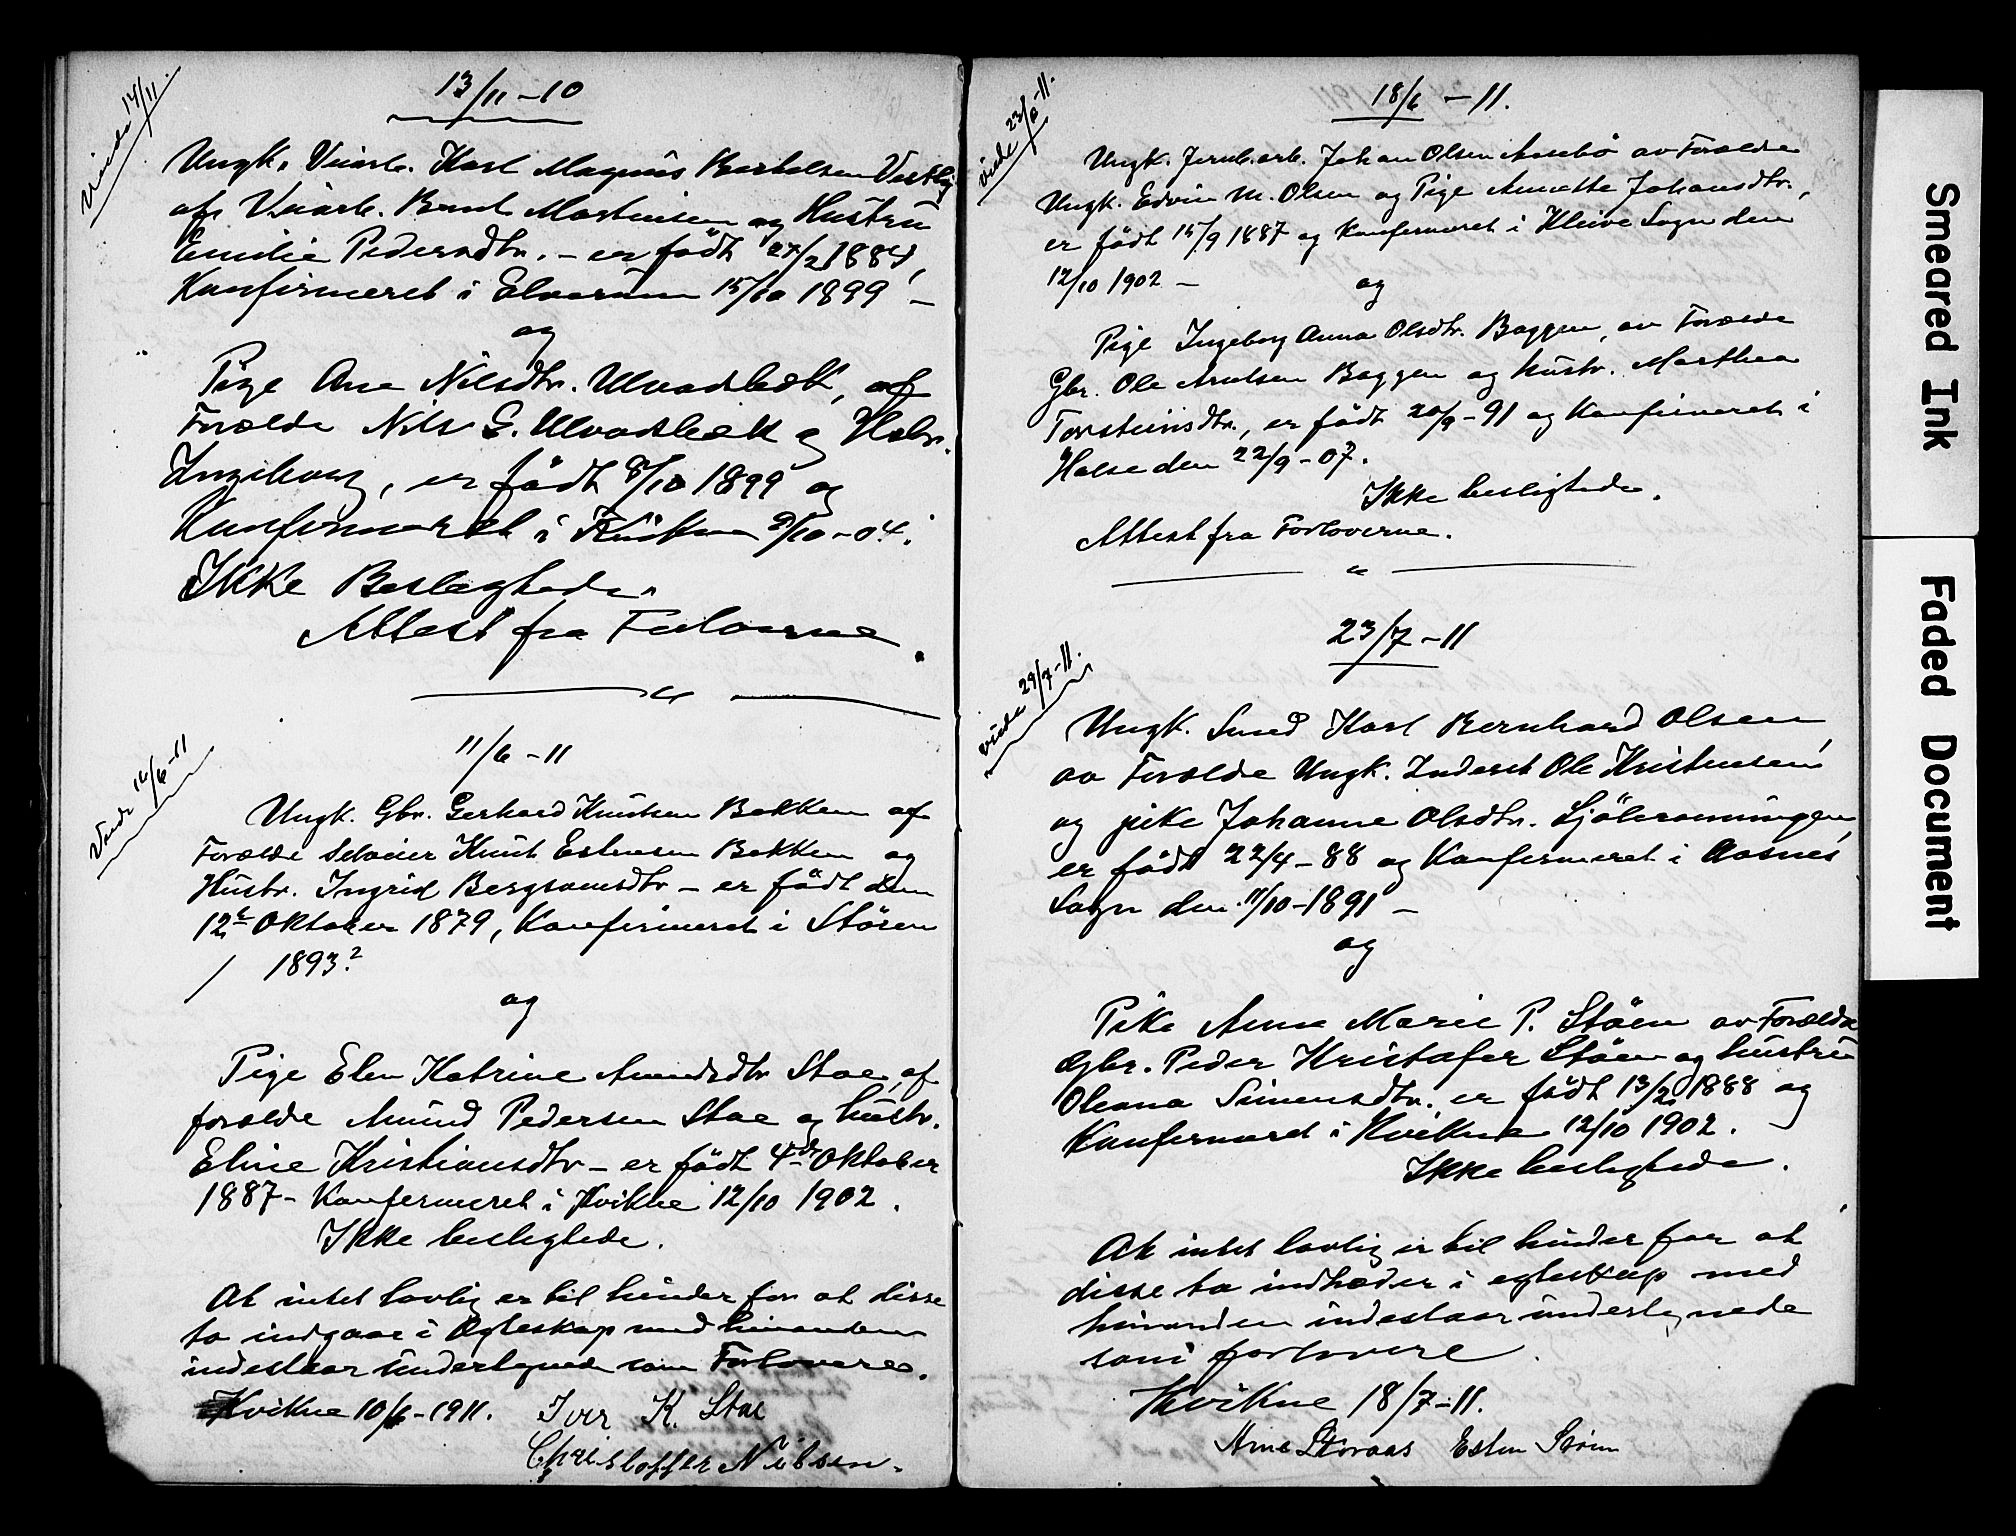 viede 14/11.
13/11 - 10
Ungk. Veiarb. Karl Magnus Bertelsen Vestby
af Veiarb. Bernt Martinsen og Hustru
Emilie Pedersdtr. - er født 27/2 1884,
Konfirmeret i Elverum 15/10 1899 -
og
Pige Ane Nilsdtr. Ulvadbæk, af
Forælde Nils G. Ulvadbæk g Hstr.
Ingeborg, er født 8/10 1899 og
Konfirmeret i Kvikne 9/10 - 04.
Ikke Beslægtede.
Attest fra Forloverne.
viede 16/6 - 11
11/6 - 11
Ungk. Gbr. Gerhard Knutsen Bakken af
Forælde Selveier Knut Estensen Bakken og
Hustr. Ingrid Bergsvensdtr - er født den
12te Oktober 1879, Konfirmeret i Støren
/ 1893?
og
Pige Elen Katrine Amundsdtr Stae, af
forælde Amund Pedersen Stae og hustr.
Eline Kristiansdtr - er født 4de Oktober
1887 - Konfermeret i Kvikne 12/10 1902.
Ikke beslegtede.
At intet lovlig er til hinder for at disse
to indgaar i Ægteskap med hinanden
indestaar undertegnede som Forlovere.
Kvikne 10/6 - 1911. Iver K. Stae
Christoffer Nilsen.
viede 23/6 - 11.
18/6 - 11.
Ungk. Jernb.arb. Johan Olsen Aasebø av Forælde
Ungk. Edvin M. Olsen og Pige Annette Johansdtr.,
er født 15/9 1887 og Konfermeret i Kleive Sogn den
12/10 1902 -
og
Pige Ingeborg Anna Olsdtr. Baggen, av Forælde
Gbr. Ole Arntsen Baggen og hustr. Marthea
Torsteinsdtr., er født 20/9 - 91 og Konfirmeret i
Halse den 22/9 - 07.
Ikke beslegtede.
Attest fra Forloverne.
viede 29/7 - 11.
23/7 - 11
Ungk. Smed Karl Bernhard Olsen,
av Forælde Ungk. Inderst Ole Kristensen
og pike Johanne Olsdtr. Sjøliromningen,
er født 22/4 - 88 og Konfermeret i Aasnes
Sogn den 11/10 - 1891 -
og
Pike Anne Marie P. Støen av Forælde
Gbr. Peder Kristofer Støen og hustru
Oleana Simensdtr., er født 13/2 1888 og
Konfermeret i Kvikne 12/10 1902.
Ikke beslegtede.
At intet lovlig er til hinder for at
disse to indtræder i egteskap med
hinanden indestaar undertegnede
som forlovere.
Kvikne 18/7 - 11.
Arne Storaas Esten Støen
Smeared Ink
Faded Document